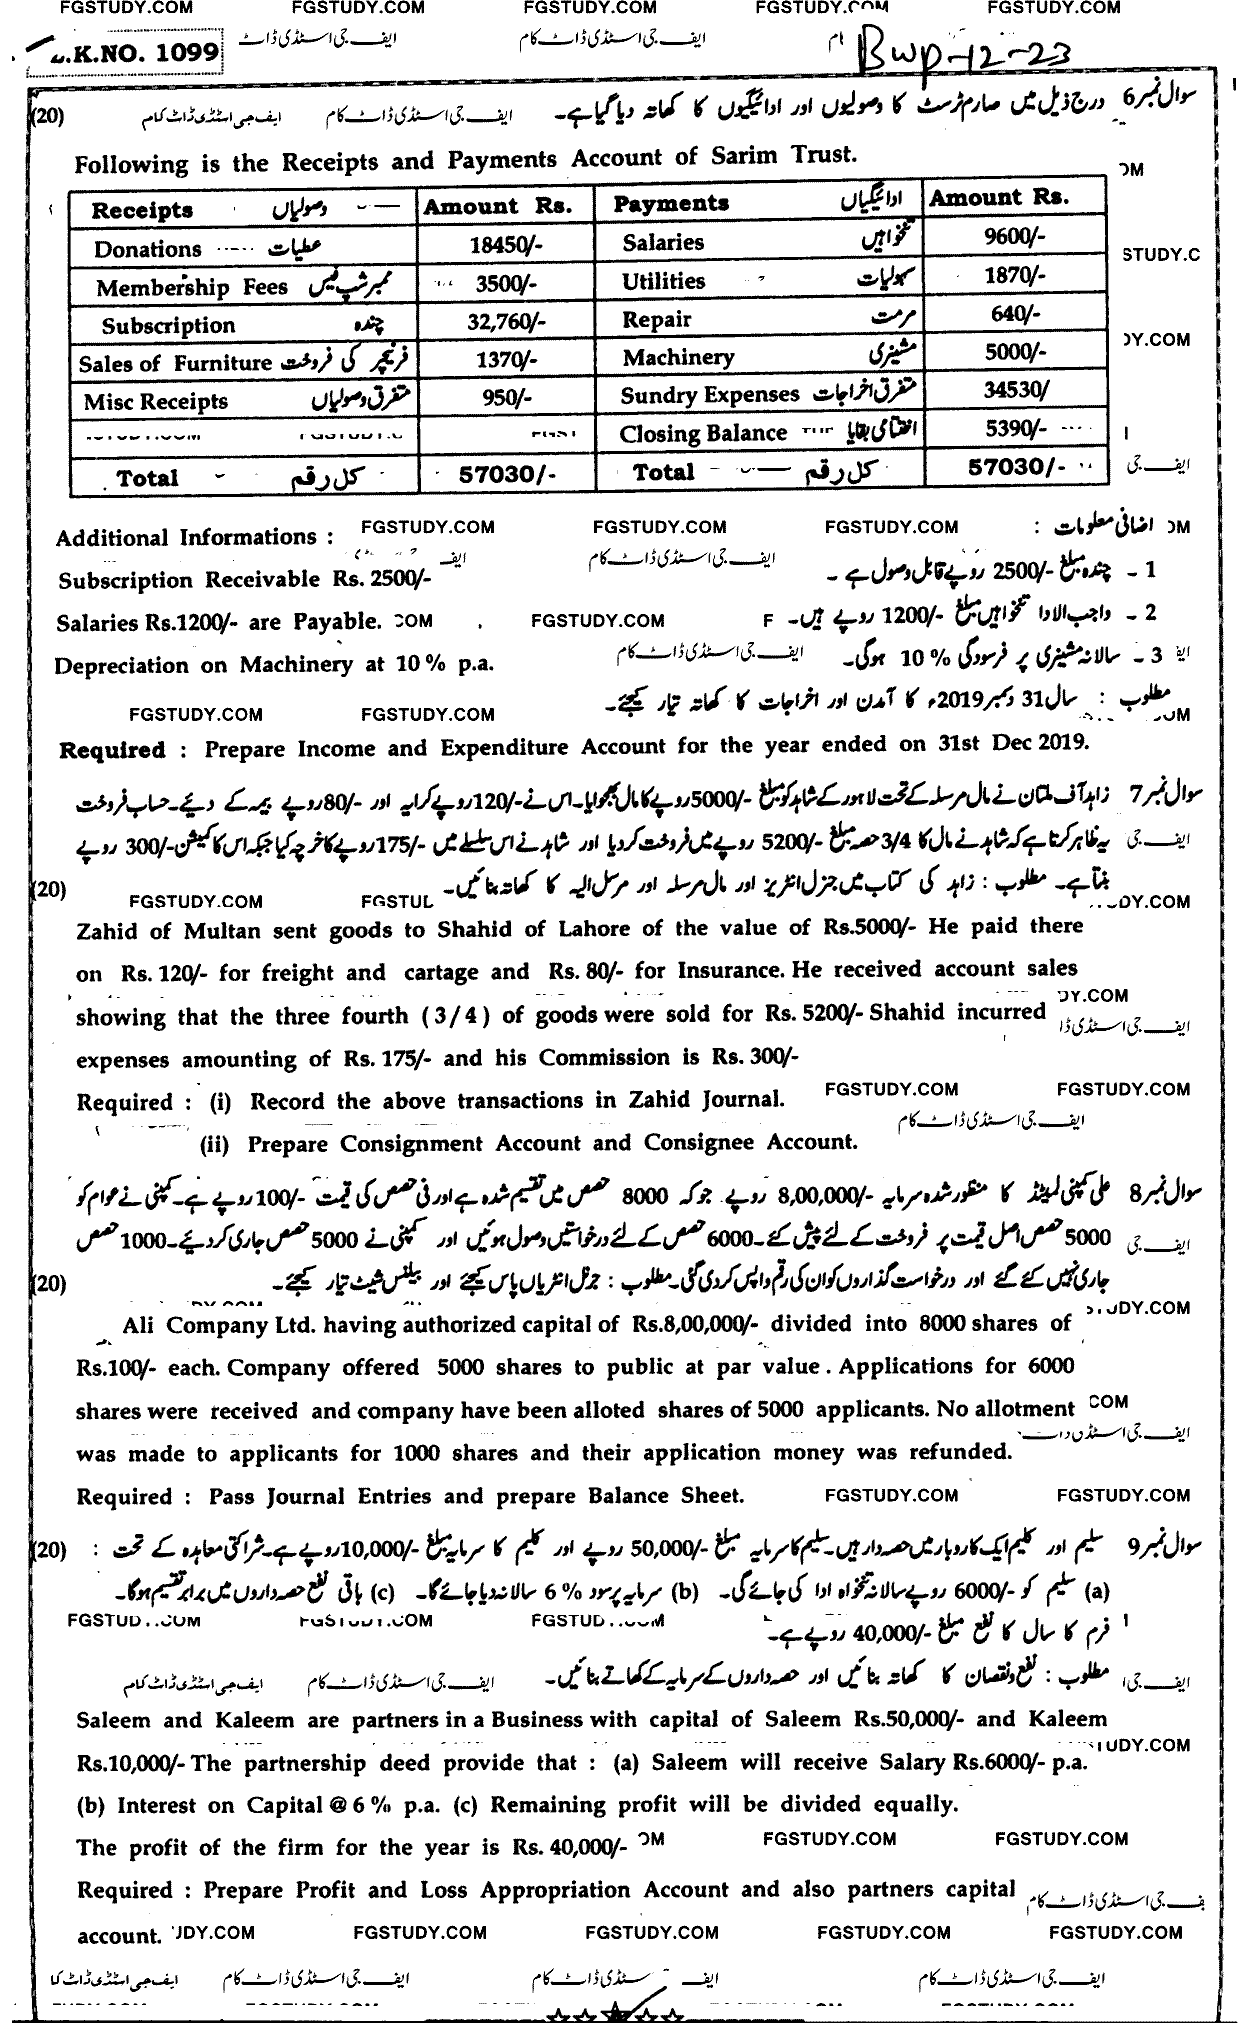 FGSTUDY.COM FGSTUDY.COM FGSTUDY.COM FGSTUDY.COM FGSTUDY.COM
.K.NO. 1099 ایف جی اسٹڈی ڈاٹ ایف جی اسٹڈی ڈاٹ کام BWP-12-23
سوال نمبر 6 درج ذیل میں صارم ٹرسٹ کا وصولیوں اور ادائیگیوں کا کھاتہ دیا گیا ہے۔ ایف جی اسٹڈی ڈاٹ کام ایف جی اسٹڈی ڈاٹ کام (20)
Following is the Receipts and Payments Account of Sarim Trust.
OM
Receipts وصولیاں Amount Rs. Payments ادائیگیاں Amount Rs.
Donations عطیات 18450/- Salaries تنخواہیں 9600/- STUDY.C
Membership Fees ممبرشپ فیس 3500/- Utilities سہولیات 1870/-
Subscription چندہ 32,760/- Repair مرمت 640/-
Sales of Furniture فرنیچر کی فروخت 1370/- Machinery مشینری 5000/- DY.COM
Misc Receipts متفرق وصولیاں 950/- Sundry Expenses متفرق اخراجات 34530/
Closing Balance اختتامی بقایا 5390/-
Total کل رقم 57030/- Total کل رقم 57030/- ایف جی
Additional Informations : FGSTUDY.COM FGSTUDY.COM FGSTUDY.COM اضافی معلومات : OM
ایف جی اسٹڈی ڈاٹ کام
Subscription Receivable Rs. 2500/- 1 ۔ چندہ مبلغ -/2500 روپے قابل وصول ہے ۔
Salaries Rs.1200/- are Payable. COM FGSTUDY.COM F 2 ۔ واجب الادا تنخواہیں مبلغ -/1200 روپے ہیں۔
Depreciation on Machinery at 10% p.a. ایف جی اسٹڈی ڈاٹ کام 3 ۔ سالانہ مشینری پر فرسودگی % 10 ہوگی۔
FGSTUDY.COM FGSTUDY.COM مطلوب : سال 31 دسمبر 2019ء کا آمدن اور اخراجات کا کھاتہ تیار کیجئے۔
Required : Prepare Income and Expenditure Account for the year ended on 31st Dec 2019.
سوال نمبر 7 زاہد آف ملتان نے مال مرسلہ کے تحت لاہور کے شاہد کو مبلغ -/5000 روپے کا مال بھجوایا۔اس نے -/120 روپے کرایہ اور -/80 روپے بیمہ کے دیئے۔حساب فروخت
ایف جی یہ ظاہر کرتا ہے کہ شاہد نے مال کا 3/4 حصہ مبلغ -/5200 روپے میں فروخت کر دیا اور شاہد نے اس سلسلے میں -/175 روپے کا خرچہ کیا جبکہ اس کا کمیشن -/300 روپے
بنتا ہے۔ مطلوب : زاہد کی کتاب میں جنرل انٹریز اور مال مرسلہ اور مرسل الیہ کا کھاتہ بنائیں۔ (20)
FGSTUDY.COM FGSTUL DY.COM
Zahid of Multan sent goods to Shahid of Lahore of the value of Rs.5000/- He paid there
on Rs. 120/- for freight and cartage and Rs. 80/- for Insurance. He received account sales
DY.COM
showing that the three fourth (3/4) of goods were sold for Rs. 5200/- Shahid incurred
expenses amounting of Rs. 175/- and his Commission is Rs. 300/-
FGSTUDY.COM FGSTUDY.COM
Required : (i) Record the above transactions in Zahid Journal.
ایف جی اسٹڈی ڈاٹ کام
(ii) Prepare Consignment Account and Consignee Account.
سوال نمبر 8 علی کمپنی لمیٹڈ کا منظور شدہ سرمایہ -/8,00,000 روپے جو کہ 8000 حصص میں تقسیم شدہ ہے اور فی حصص کی قیمت -/100 روپے ہے۔کمپنی نے عوام کو
ایف جی 5000 حصص اصل قیمت پر فروخت کے لئے پیش کئے۔6000 حصص کے لئے درخواستیں وصول ہوئیں اور کمپنی نے 5000 حصص جاری کر دیئے۔1000 حصص
جاری نہیں کئے گئے اور درخواست گذاروں کو ان کی رقم واپس کر دی گئی۔مطلوب : جنرل انٹریاں پاس کیجئے اور بیلنس شیٹ تیار کیجئے۔ (20)
Ali Company Ltd. having authorized capital of Rs.8,00,000/- divided into 8000 shares of
Rs.100/- each. Company offered 5000 shares to public at par value . Applications for 6000
shares were received and company have been alloted shares of 5000 applicants. No allotment COM
was made to applicants for 1000 shares and their application money was refunded.
Required : Pass Journal Entries and prepare Balance Sheet. FGSTUDY.COM FGSTUDY.COM
سوال نمبر 9 سلیم اور کلیم ایک کاروبار میں حصہ دار ہیں۔سلیم کا سرمایہ مبلغ -/50,000 روپے اور کلیم کا سرمایہ مبلغ -/10,000 روپے ہے۔شراکتی معاہدہ کے تحت : (20)
(a) سلیم کو -/6000 روپے سالانہ تنخواہ ادا کی جائے گی۔ (b) سرمایہ پر سود % 6 سالانہ دیا جائے گا۔ (c) باقی نفع حصہ داروں میں برابر تقسیم ہوگا۔
فرم کا سال کا نفع مبلغ -/40,000 روپے ہے۔
مطلوب : نفع و نقصان کا کھاتہ بنائیں اور حصہ داروں کے سرمایہ کے کھاتے بنائیں۔ ایف جی اسٹڈی ڈاٹ کام ایف جی اسٹڈی ڈاٹ کام
Saleem and Kaleem are partners in a Business with capital of Saleem Rs.50,000/- and Kaleem
Rs.10,000/- The partnership deed provide that : (a) Saleem will receive Salary Rs.6000/- p.a.
(b) Interest on Capital @ 6% p.a. (c) Remaining profit will be divided equally.
The profit of the firm for the year is Rs. 40,000/- OM FGSTUDY.COM FGSTUDY.COM
Required : Prepare Profit and Loss Appropriation Account and also partners capital
account. UDY.COM FGSTUDY.COM FGSTUDY.COM FGSTUDY.COM FGSTUDY.COM
ایف جی اسٹڈی ڈاٹ کا ایف جی اسٹڈی ڈاٹ کام ایف جی اسٹڈی ڈاٹ کام ایف جی اسٹڈی ڈاٹ کام